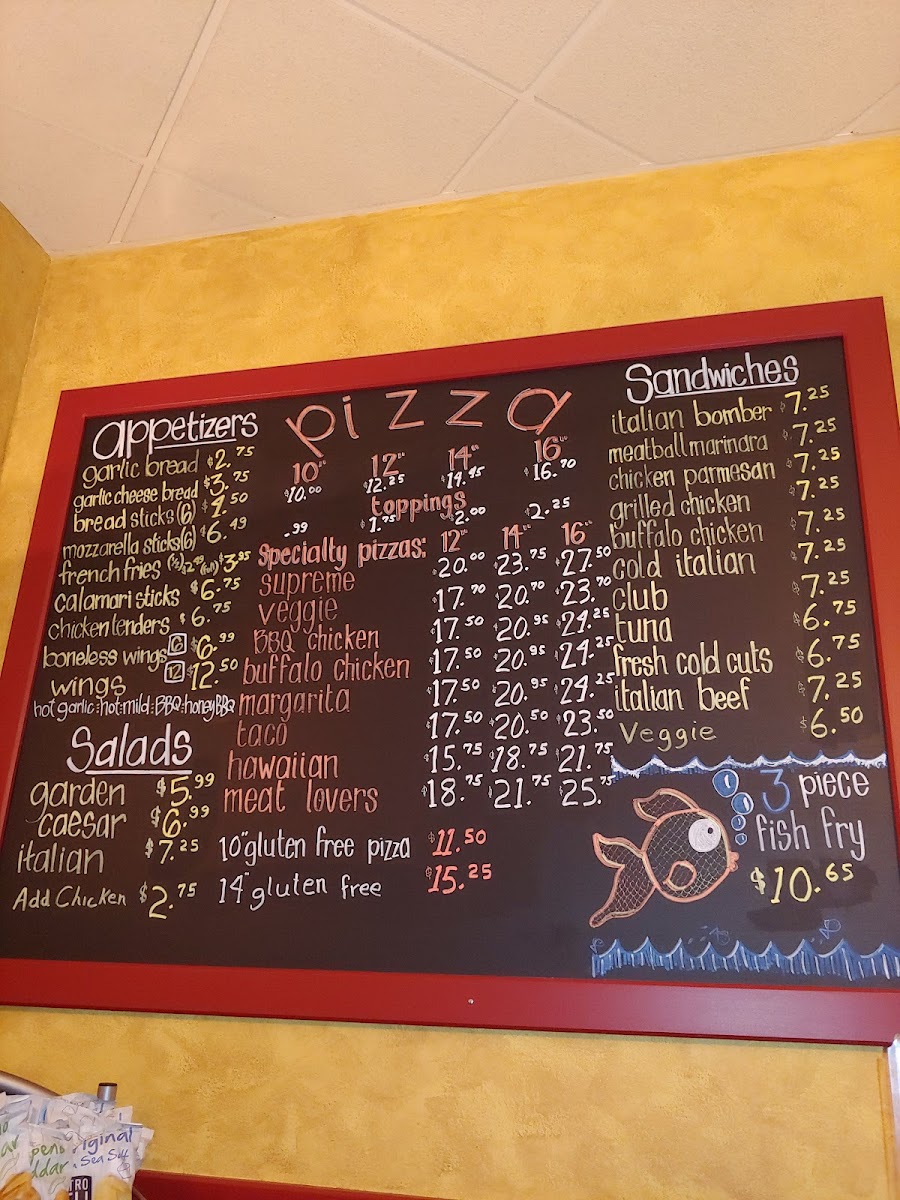 appetizers
garlic bread $2.75
garlic cheese bread $3.75
bread sticks (6) $4.50
mozzarella sticks (6) $6.49
french fries (1/2) $2.49 (full) $3.95
calamari sticks $6.75
chicken tenders $6.75
boneless wings 6 $6.99
wings 12 $12.50
hot garlic:hot:mild:BBQ:honey BBQ
Salads
garden $5.99
caesar $6.99
italian $7.25
Add Chicken $2.75
pizza
10" 12" 14" 16"
$10.00 $12.25 $14.45 $16.70
toppings
.99 $1.75 $2.00 $2.25
Specialty pizzas: 12" 14" 16"
supreme $20.00 $23.75 $27.50
veggie $17.70 $20.70 $23.70
BBQ chicken $17.50 $20.95 $24.25
buffalo chicken $17.50 $20.95 $24.25
margarita $17.50 $20.95 $24.25
taco $17.50 $20.50 $23.50
hawaiian $15.75 $18.75 $21.75
meat lovers $18.75 $21.75 $25.75
10" gluten free pizza $11.50
14" gluten free $15.25
Sandwiches
italian bomber $7.25
meatball marinara $7.25
chicken parmesan $7.25
grilled chicken $7.25
buffalo chicken $7.25
cold italian $7.25
club $7.25
tuna $6.75
fresh cold cuts $6.75
italian beef $7.25
Veggie $6.50
3 piece
fish fry
$10.65
original
Sea Salt